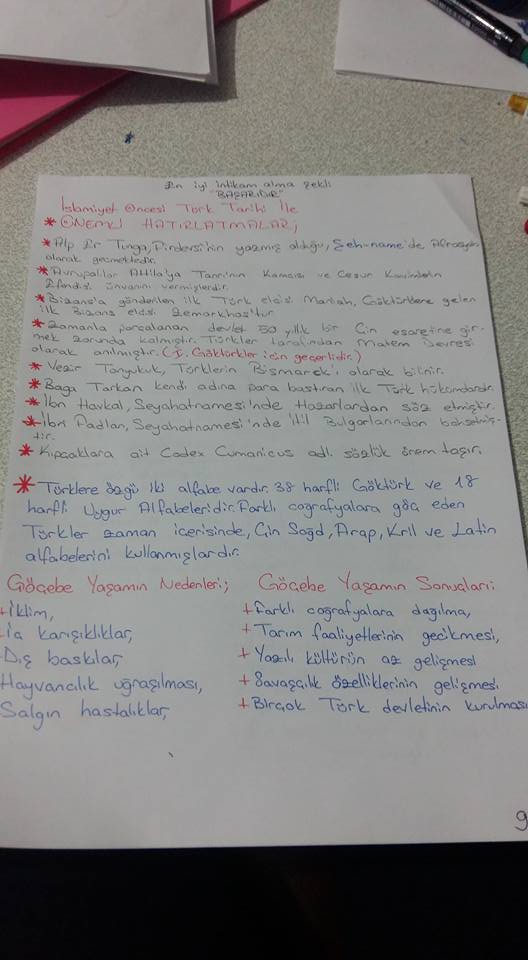 En iyi intikam alma şekli
"BAŞARIDIR"
İslamiyet Öncesi Türk Tarihi İle
* ÖNEMLİ HATIRLATMALAR;
* Alp Er Tunga, Firdersi'nin yazmış olduğu, Şeh-name'de Afrasyab
olarak geçmektedir.
* Avrupalılar Attila'ya Tanrının Kamçısı ve Cesur Kavimlerin
Efendisi ünvanını vermişlerdir.
* Bizans'a gönderilen ilk Türk elçisi Maniah, Göktürklere gelen
ilk Bizans elçisi Zemarkhos'tur
* Zamanla parçalanan devlet 50 yıllık bir Çin esaretine gir-
mek zorunda kalmıştır. Türkler tarafından Matem Devresi
olarak anılmıştır. (I. Göktürkler için geçerlidir.)
* Vezir Tonyukuk, Türklerin Bismarck'ı olarak bilinir.
* Baga Tarkan kendi adına para bastıran ilk Türk hükümdarıdır.
* İbn Havkal, Seyahatnamesi'nde Hazarlardan söz etmiştir.
* İbni Fadlan, Seyahatnamesi'nde İtil Bulgarlarından bahsetmiş-
tir.
* Kıpçaklara ait Codex Cumanicus adlı sözlük önem taşır.
* Türklere özgü iki alfabe vardır. 38 harfli Göktürk ve 18
harfli Uygur Alfabeleridir. Farklı coğrafyalara göç eden
Türkler zaman içerisinde, Çin Soğd, Arap, Kril ve Latin
alfabelerini kullanmışlardır.
Göçebe Yaşamın Nedenleri;
+ İklim,
- İç karışıklıklar,
- Dış baskılar,
Hayvancılık uğraşılması,
Salgın hastalıklar,
Göçebe Yaşamın Sonuçları:
+ Farklı coğrafyalara dağılma,
+ Tarım faaliyetlerinin gecikmesi,
+ Yazılı kültürün az gelişmesi
+ Savaşçılık özelliklerinin gelişmesi
+ Birçok Türk devletinin kurulması
9